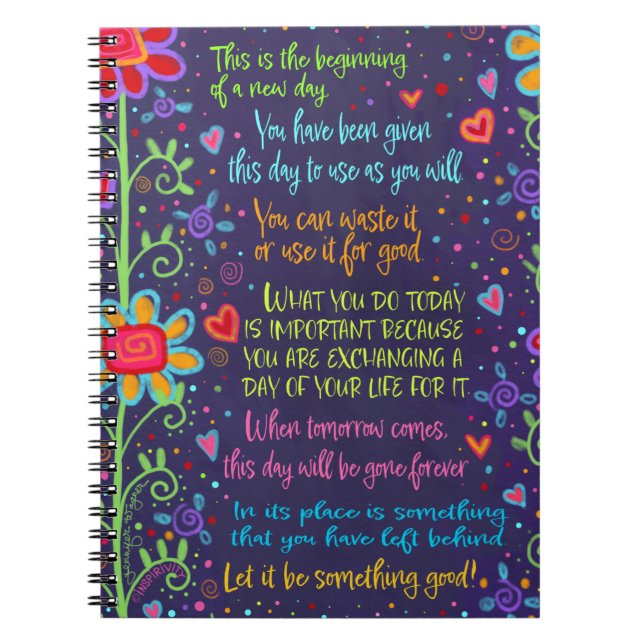 This is the beginning
of a new day.
You have been given
this day to use as you will.
You can waste it
or use it for good.
WHAT YOU DO TODAY
IS IMPORTANT BECAUSE
YOU ARE EXCHANGING A
DAY OF YOUR LIFE FOR IT.
When tomorrow comes,
this day will be gone forever
In its place is something
that you have left behind.
Let it be something good!
jennifer wagner
©INSPIRIVITY